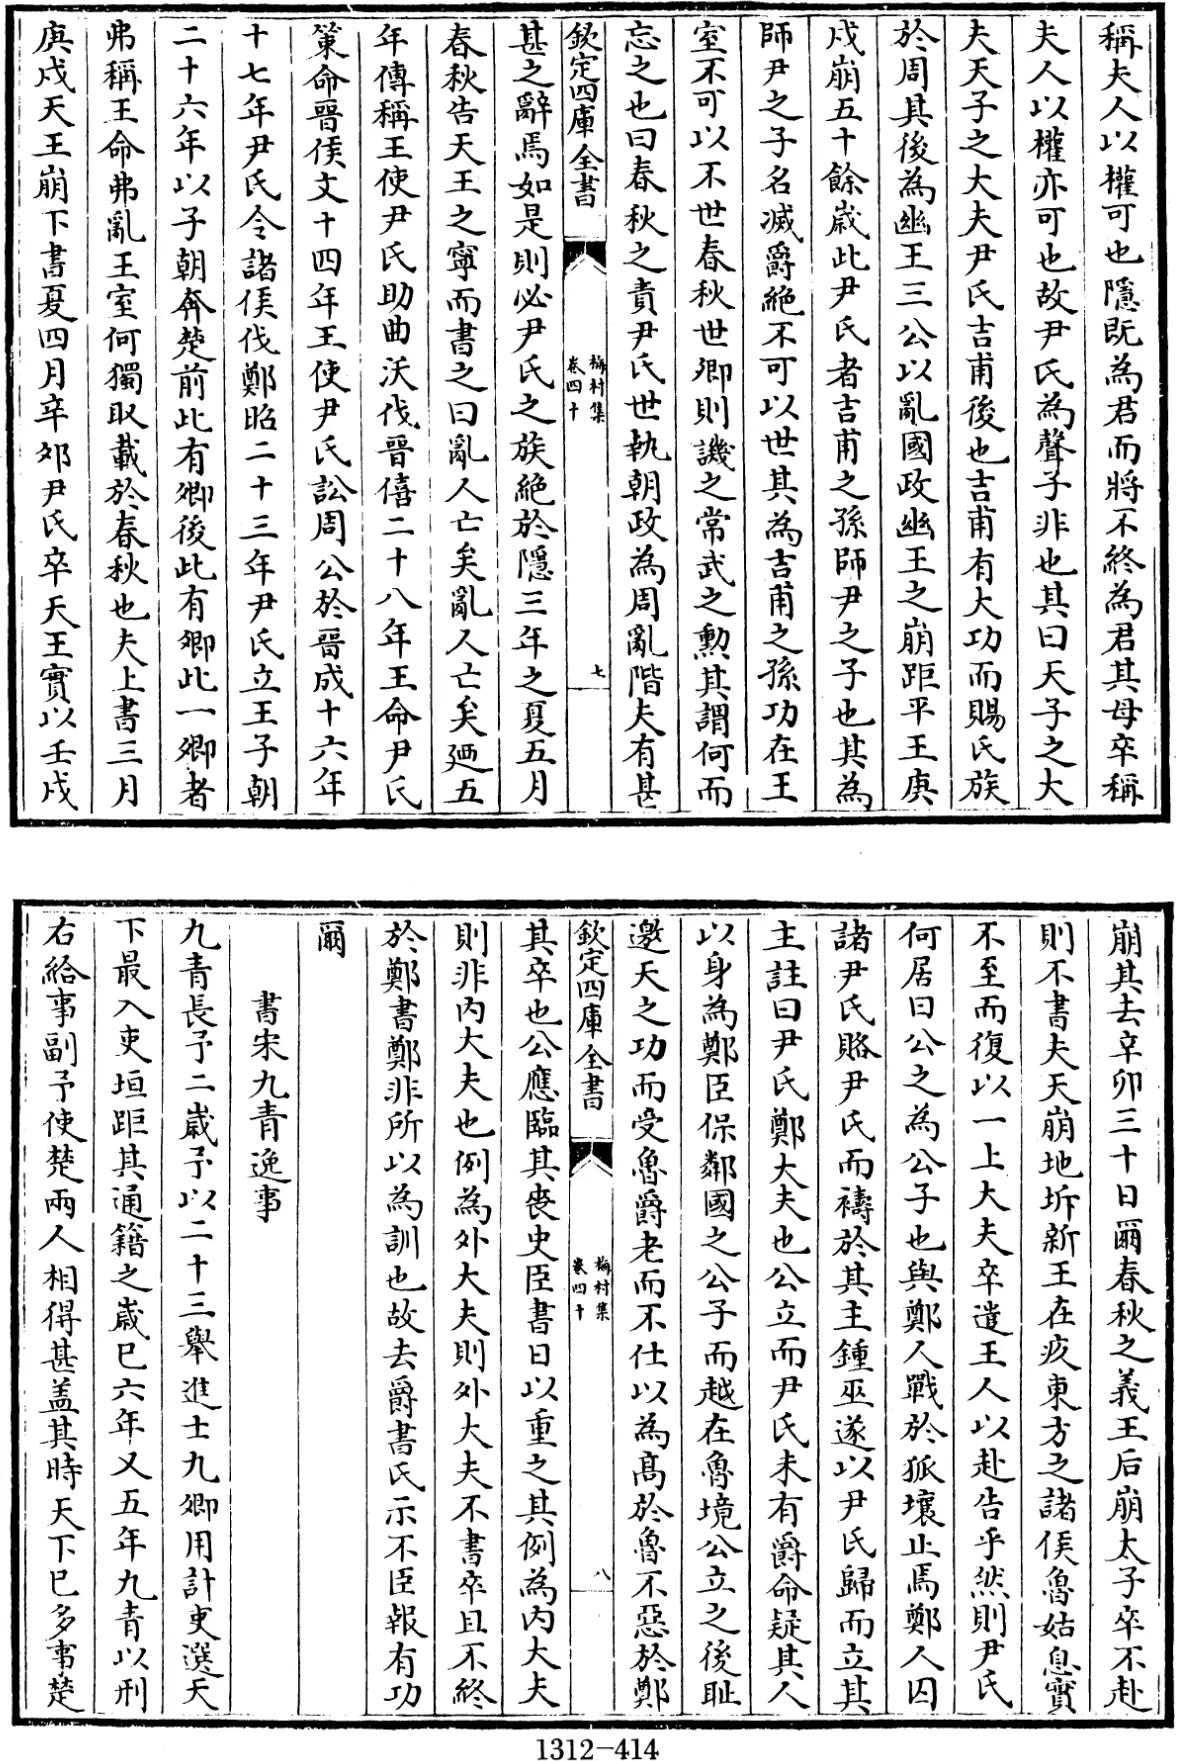 稱夫人以權可也隱既為君而將不終為君其母卒稱
夫人以權亦可也故尹氏為聲子非也其曰天子之大
夫天子之大夫尹氏吉甫後也吉甫有大功而賜氏族
於周其後為幽王三公以亂國政幽王之崩距平王庚
戌崩五十餘歲此尹氏者吉甫之孫師尹之子也其為
師尹之子名滅爵絕不可以世其為吉甫之孫功在王
室不可以不世春秋世卿則譏之常武之勲其謂何而
忘之也曰春秋之責尹氏世執朝政為周亂階夫有甚
欽定四庫全書
梅村集
卷四十
七
甚之辭焉如是則必尹氏之族絕於隱三年之夏五月
春秋告天王之寧而書之曰亂人亡矣亂人亡矣廼五
年傳稱王使尹氏助曲沃伐晉僖二十八年王命尹氏
策命晉侯文十四年王使尹氏訟周公於晉成十六年
十七年尹氏令諸侯伐鄭昭二十三年尹氏立王子朝
二十六年以子朝奔楚前此有卿後此有卿此一卿者
弗稱王命弗亂王室何獨取載於春秋也夫上書三月
庚戌天王崩下書夏四月辛卯尹氏卒天王實以壬戌
崩其去辛卯三十日爾春秋之義王后崩太子卒不赴
則不書夫天崩地坼新王在疚東方之諸侯魯姑息實
不至而復以一上大夫卒遣王人以赴告乎然則尹氏
何居曰公之為公子也與鄭人戰於狐壤止焉鄭人囚
諸尹氏賂尹氏而禱於其主鍾巫遂以尹氏歸而立其
主註曰尹氏鄭大夫也公立而尹氏未有爵命疑其人
以身為鄭臣保鄰國之公子而越在魯境公立之後恥
邀天之功而受魯爵老而不仕以為高於魯不惡於鄭
欽定四庫全書
梅村集
卷四十
八
其卒也公應臨其喪史臣書曰以重之其例為內大夫
則非內大夫也例為外大夫則外大夫不書卒且不終
於鄭書鄭非所以為訓也故去爵書氏示不臣報有功
爾
書宋九青逸事
九青長予二歲予以二十三舉進士九卿用計吏選天
下最入吏垣距其通籍之歲已六年又五年九青以刑
右給事副予使楚兩人相得甚盖其時天下已多事楚
1312-414